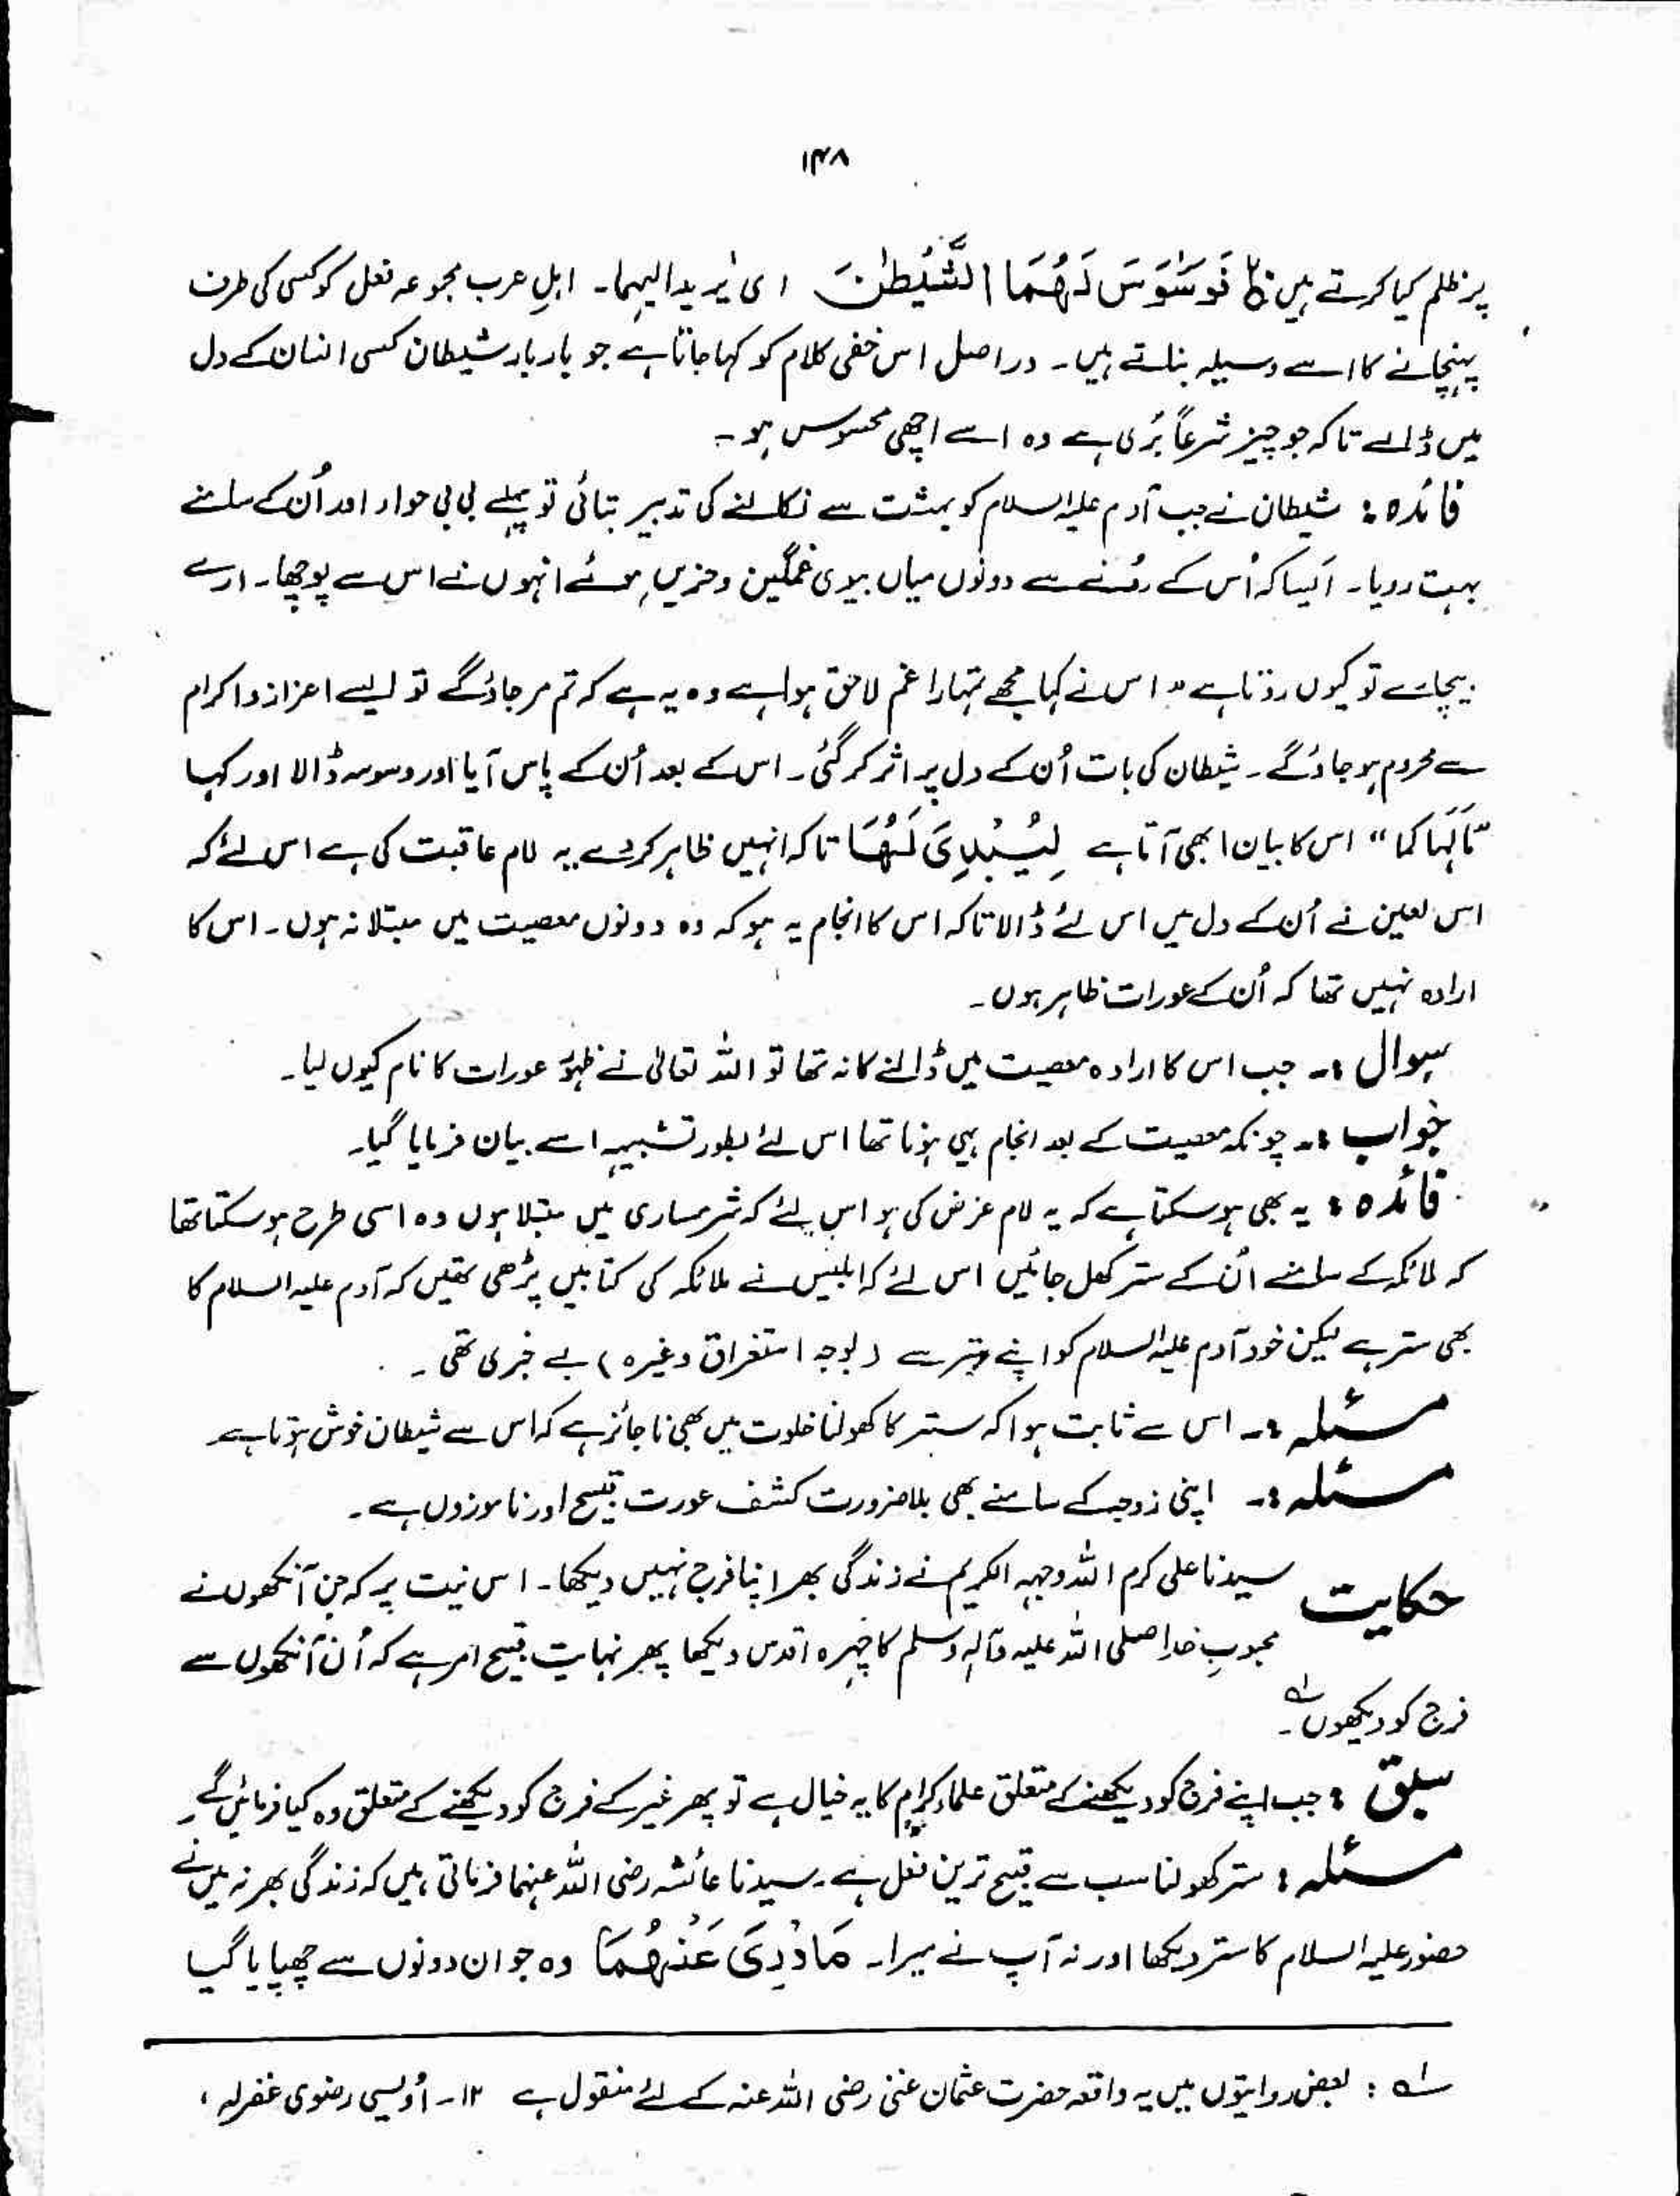 ۱۴۸
پر ظلم کیا کرتے ہیں فَوَسْوَسَ لَهُمَا الشَّيْطٰنُ ای یرید الیہما۔ اہلِ عرب مجموعہ فعل کو کسی کی طرف
پہنچانے کا اسے وسیلہ بناتے ہیں۔ دراصل اس خفی کلام کو کہا جاتا ہے جو بار بار شیطان کسی انسان کے دل
میں ڈالے تاکہ جو چیز شرعاً بُری ہے وہ اسے اچھی محسوس ہو۔
فائدہ : شیطان نے جب آدم علیہ السلام کو بہشت سے نکالنے کی تدبیر بتائی تو پہلے بی بی حواء اور اُن کے سامنے
بہت رویا۔ ایسا کہ اُس کے رونے سے دونوں میاں بیوی غمگین و حزیں ہوئے انہوں نے اس سے پوچھا۔ ارے
بیچارے تو کیوں روتا ہے" اس نے کہا مجھے تمہارا غم لاحق ہوا ہے وہ یہ ہے کہ تم مر جاؤ گے تو ایسے اعزاز و اکرام
سے محروم ہو جاؤ گے۔ شیطان کی بات اُن کے دل پر اثر کر گئی۔ اس کے بعد اُن کے پاس آیا اور وسوسہ ڈالا اور کہا
مَا نَهَا كُمَا" اس کا بیان ابھی آتا ہے لِيُبْدِيَ لَهُمَا تاکہ انہیں ظاہر کر دے یہ لام عاقبت کی ہے اس لئے کہ
اس لعین نے اُن کے دل میں اس لئے ڈالا تاکہ اس کا انجام یہ ہو کہ وہ دونوں معصیت میں مبتلا نہ ہوں۔ اس کا
ارادہ نہیں تھا کہ اُن کے عورات ظاہر ہوں۔
سوال :۔ جب اس کا ارادہ معصیت میں ڈالنے کا نہ تھا تو اللہ تعالیٰ نے ظہور عورات کا نام کیوں لیا۔
جواب :۔ چونکہ معصیت کے بعد انجام یہی ہونا تھا اس لئے بطور تشبیہہ اسے بیان فرمایا گیا۔
فائدہ : یہ بھی ہو سکتا ہے کہ یہ لام غرض کی ہو اس لئے کہ شرمساری میں مبتلا ہوں وہ اسی طرح ہو سکتا تھا
کہ ملائکہ کے سامنے اُن کے ستر کھل جائیں اس لئے کہ ابلیس نے ملائکہ کی کتابیں پڑھی تھیں کہ آدم علیہ السلام کا
بھی ستر ہے لیکن خود آدم علیہ السلام کو اپنے ستر سے (بوجہ استغراق وغیرہ) بے خبری تھی۔
مسئلہ :۔ اس سے ثابت ہوا کہ ستر کا کھولنا خلوت میں بھی ناجائز ہے کہ اس سے شیطان خوش ہوتا ہے
مسئلہ :۔ اپنی زوجہ کے سامنے بھی بلا ضرورت کشف عورت قبیح اور ناموزوں ہے۔
حکایت سیدنا علی کرم اللہ وجہہ الکریم نے زندگی بھر اپنا فرج نہیں دیکھا۔ اس نیت پر کہ جن آنکھوں نے
محبوبِ خدا صلی اللہ علیہ وآلہ وسلم کا چہرہ اقدس دیکھا پھر نہایت قبیح امر ہے کہ اُن آنکھوں سے
فرج کو دیکھوں لہ۔
سبق : جب اپنے فرج کو دیکھنے کے متعلق علماء کرام کا یہ خیال ہے تو پھر غیر کے فرج کو دیکھنے کے متعلق وہ کیا فرمائیں گے۔
مسئلہ : ستر کھولنا سب سے قبیح ترین فعل ہے۔ سیدنا عائشہ رضی اللہ عنہما فرماتی ہیں کہ زندگی بھر نہ میں نے
حضور علیہ السلام کا ستر دیکھا اور نہ آپ نے میرا۔ مَا وٗرِيَ عَنْهُمَا وہ جو ان دونوں سے چھپایا گیا
لہ : بعض روایتوں میں یہ واقعہ حضرت عثمان غنی رضی اللہ عنہ کے لئے منقول ہے ۱۲۔ اُویسی رضوی غفرلہ،